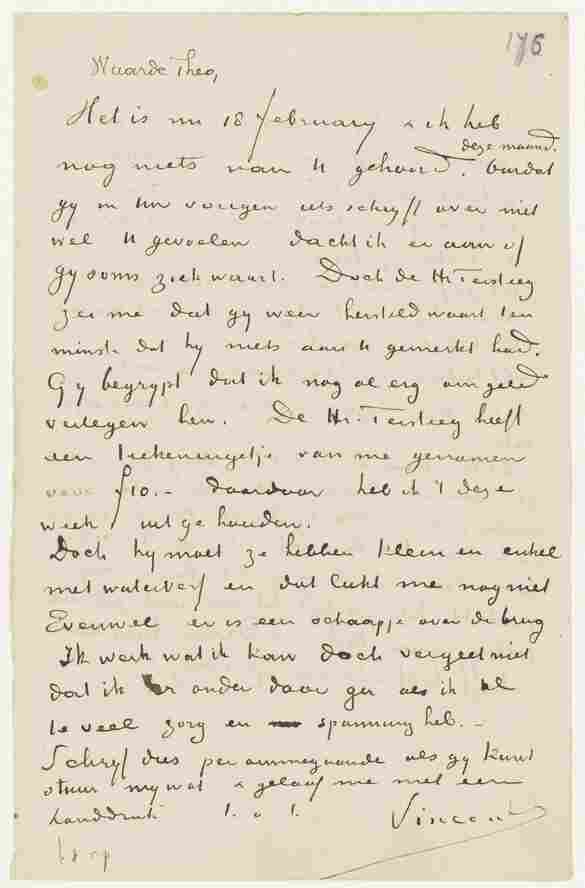 176
Waarde Theo,
Het is nu 18 february & ik heb
deze maand.
nog niets van U gehoord. Omdat
gy in Uw vorigen iets schryft over niet
wel U gevoelen dacht ik er aan of
gy soms ziek waart. Doch de Hr Tersteeg
zei me dat gy weer hersteld waart ten
minste dat hy niets aan U gemerkt had.
Gy begrypt dat ik nog al erg om geld
verlegen ben. De Hr. Tersteeg heeft
een teekeningetje van me genomen
voor f10.- daardoor heb ik 't deze
week uitgehouden.
Doch hy moet ze hebben klein en enkel
met waterverf en dat lukt me nog niet
Evenwel er is een schaapje over de brug
Ik werk wat ik kan doch vergeet niet
dat ik er onder door ga als ik al
te veel zorg en spanning heb. -
Schryf dus per ommegaande als gy kunt
stuur my wat & geloof me met een
handdruk t. à t.
Vincent